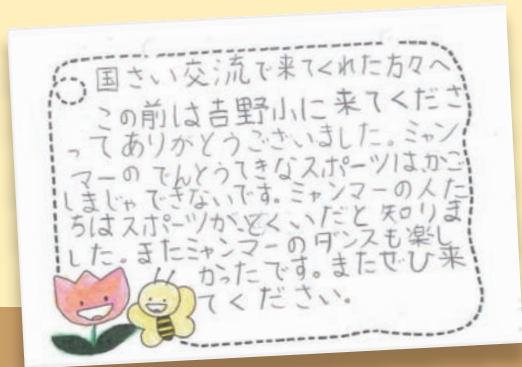 国さい交流で来てくれた方々へ
この前は吉野小に来てくださ
ってありがとうございました。ミャン
マーのでんとうてきなスポーツは、かご
しまじゃできないです。ミャンマーの人た
ちはスポーツが、とくいだと知りま
した。またミャンマーのダンスも楽し
かったです。またぜひ来
てください。